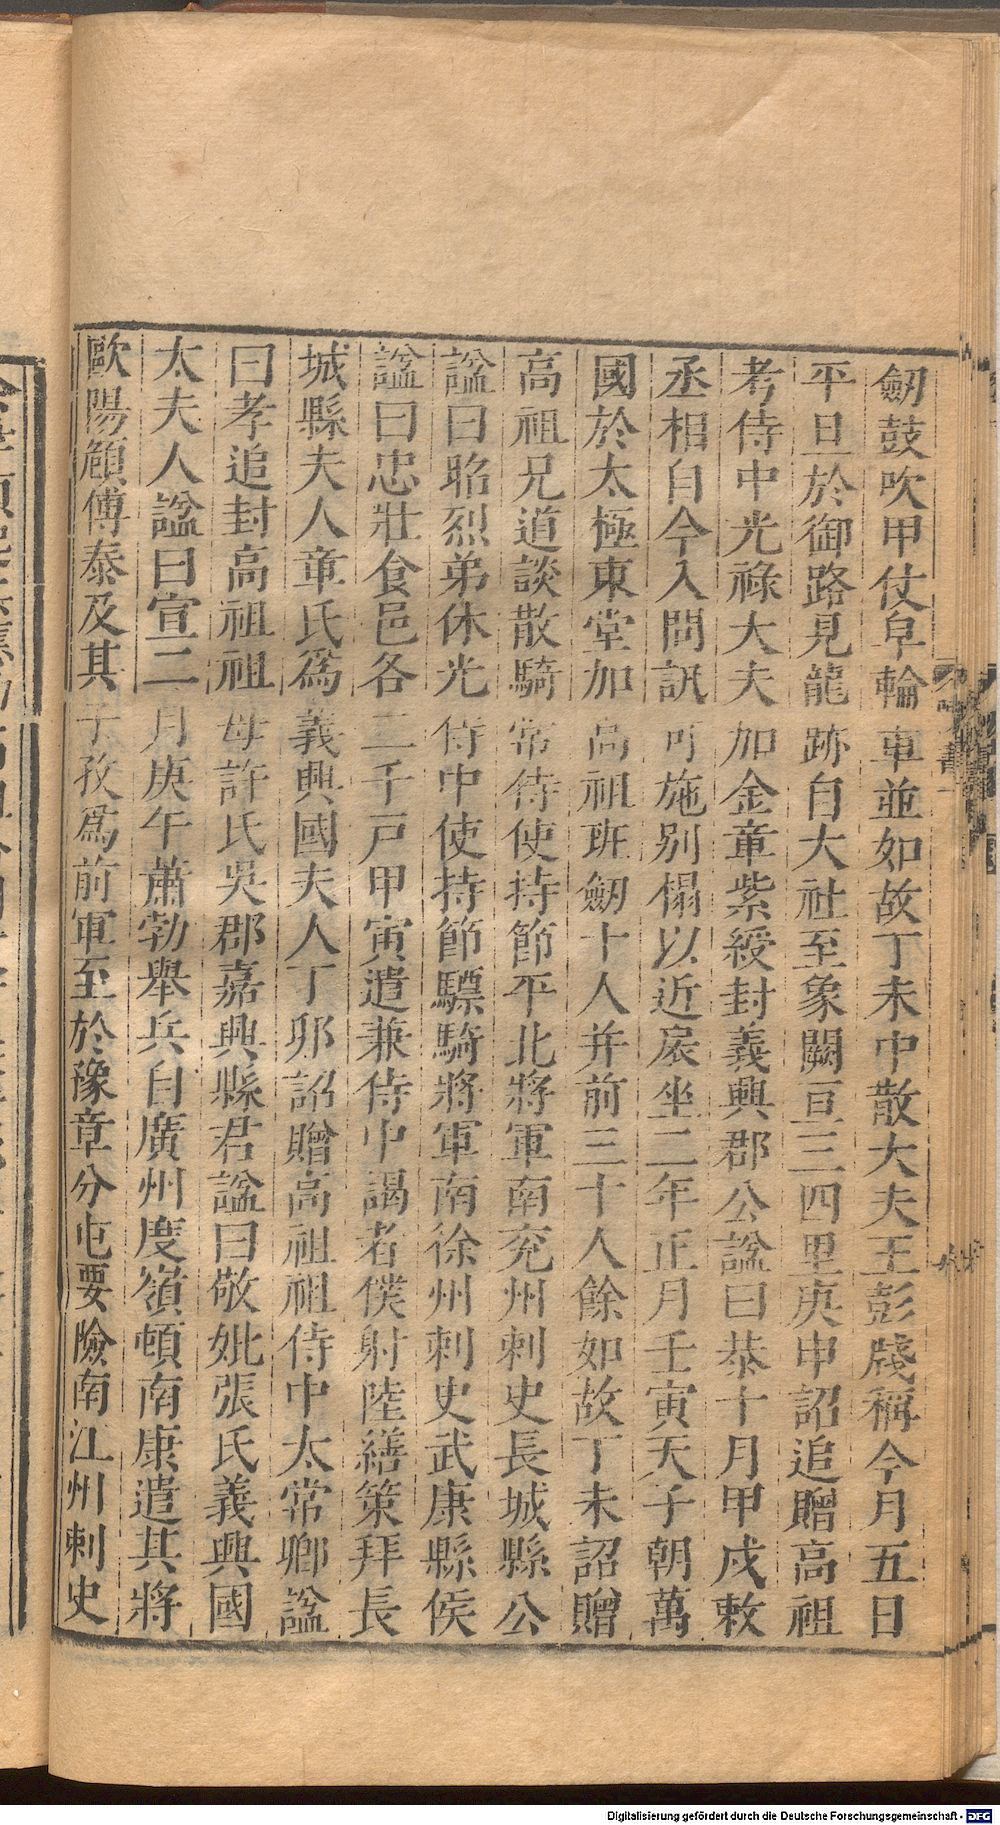 劒鼓吹甲仗皁輪車並如故丁未中散大夫王彭牋稱今月五日
平旦於御路見龍跡自大社至象闕亘三四里庚申詔追贈高祖
考侍中光祿大夫加金章紫綬封義興郡公諡曰恭十月甲戌敕
丞相自今入問訊可施別榻以近扆坐二年正月壬寅天子朝萬
國於太極東堂加高祖班劒十人并前三十人餘如故丁未詔贈
高祖兄道談散騎常侍使持節平北將軍南兖州刺史長城縣公
諡曰昭烈弟休光侍中使持節驃騎將軍南徐州刺史武康縣侯
諡曰忠壯食邑各二千戸甲寅遣兼侍中謁者僕射陸繕策拜長
城縣夫人章氏爲義興國夫人丁卯詔贈高祖祖侍中太常卿諡
曰孝追封高祖祖母許氏吳郡嘉興縣君諡曰敬妣張氏義興國
太夫人諡曰宣二月庚午蕭勃舉兵自廣州度嶺頓南康遣其將
歐陽頠傅泰及其子孜爲前軍至於豫章分屯要險南江州刺史
Digitalisierung gefördert durch die Deutsche Forschungsgemeinschaft - DFG